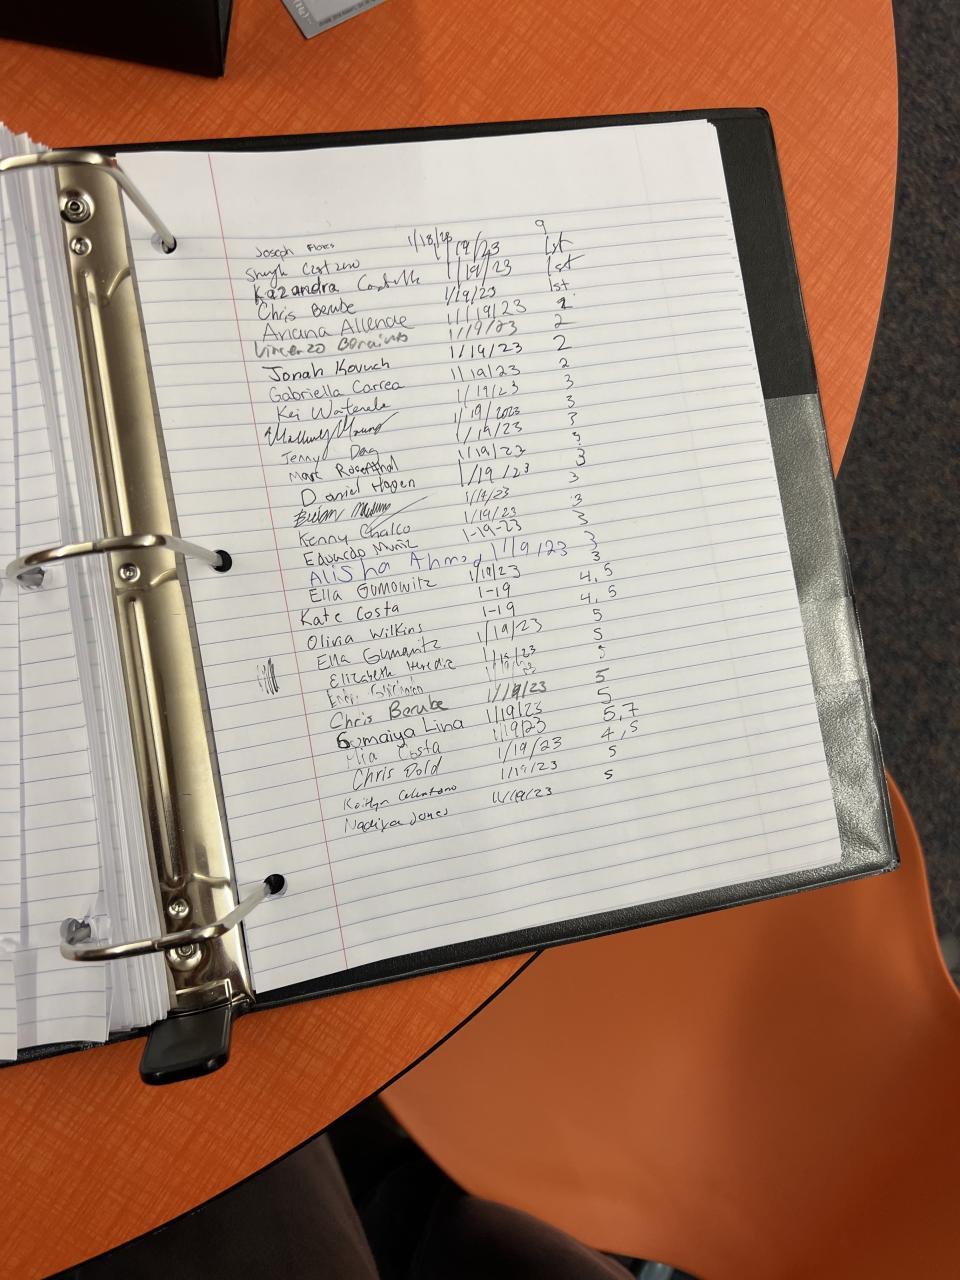 Joseph Flores 1/18/23 9
1/19/23 1st
Kazandra 1/19/23 1st
Chris Berube 1/19/23 1st
Ariana Allende 1/19/23 2
Vincenzo 1/19/23 2
Jonah 1/19/23 2
Gabriella Correa 1/19/23 2
Kei 1/19/23 3
1/19/2023 3
Jenny 1/19/23 3
Marc Rosenthal 1/19/23 3
Daniel Hagen 1/19/23 3
1/19/23 3
Kenny Chalco 1/19/23 3
Eduardo Muñiz 1-19-23 3
Alisha Ahmad 1/19/23 3
Ella Gumowitz 1/19/23 3
Kate Costa 1-19 4, 5
Olivia Wilkins 1-19 4, 5
Ella Gumowitz 1/19/23 5
Elizabeth Heredia 5
5
Chris Berube 1/19/23 5
Sumaiya Lina 1/19/23 5
Mia Costa 1/19/23 5,7
Chris Dold 1/19/23 4, 5
Kaitlyn 1/19/23 5
Nadiya Jones 5